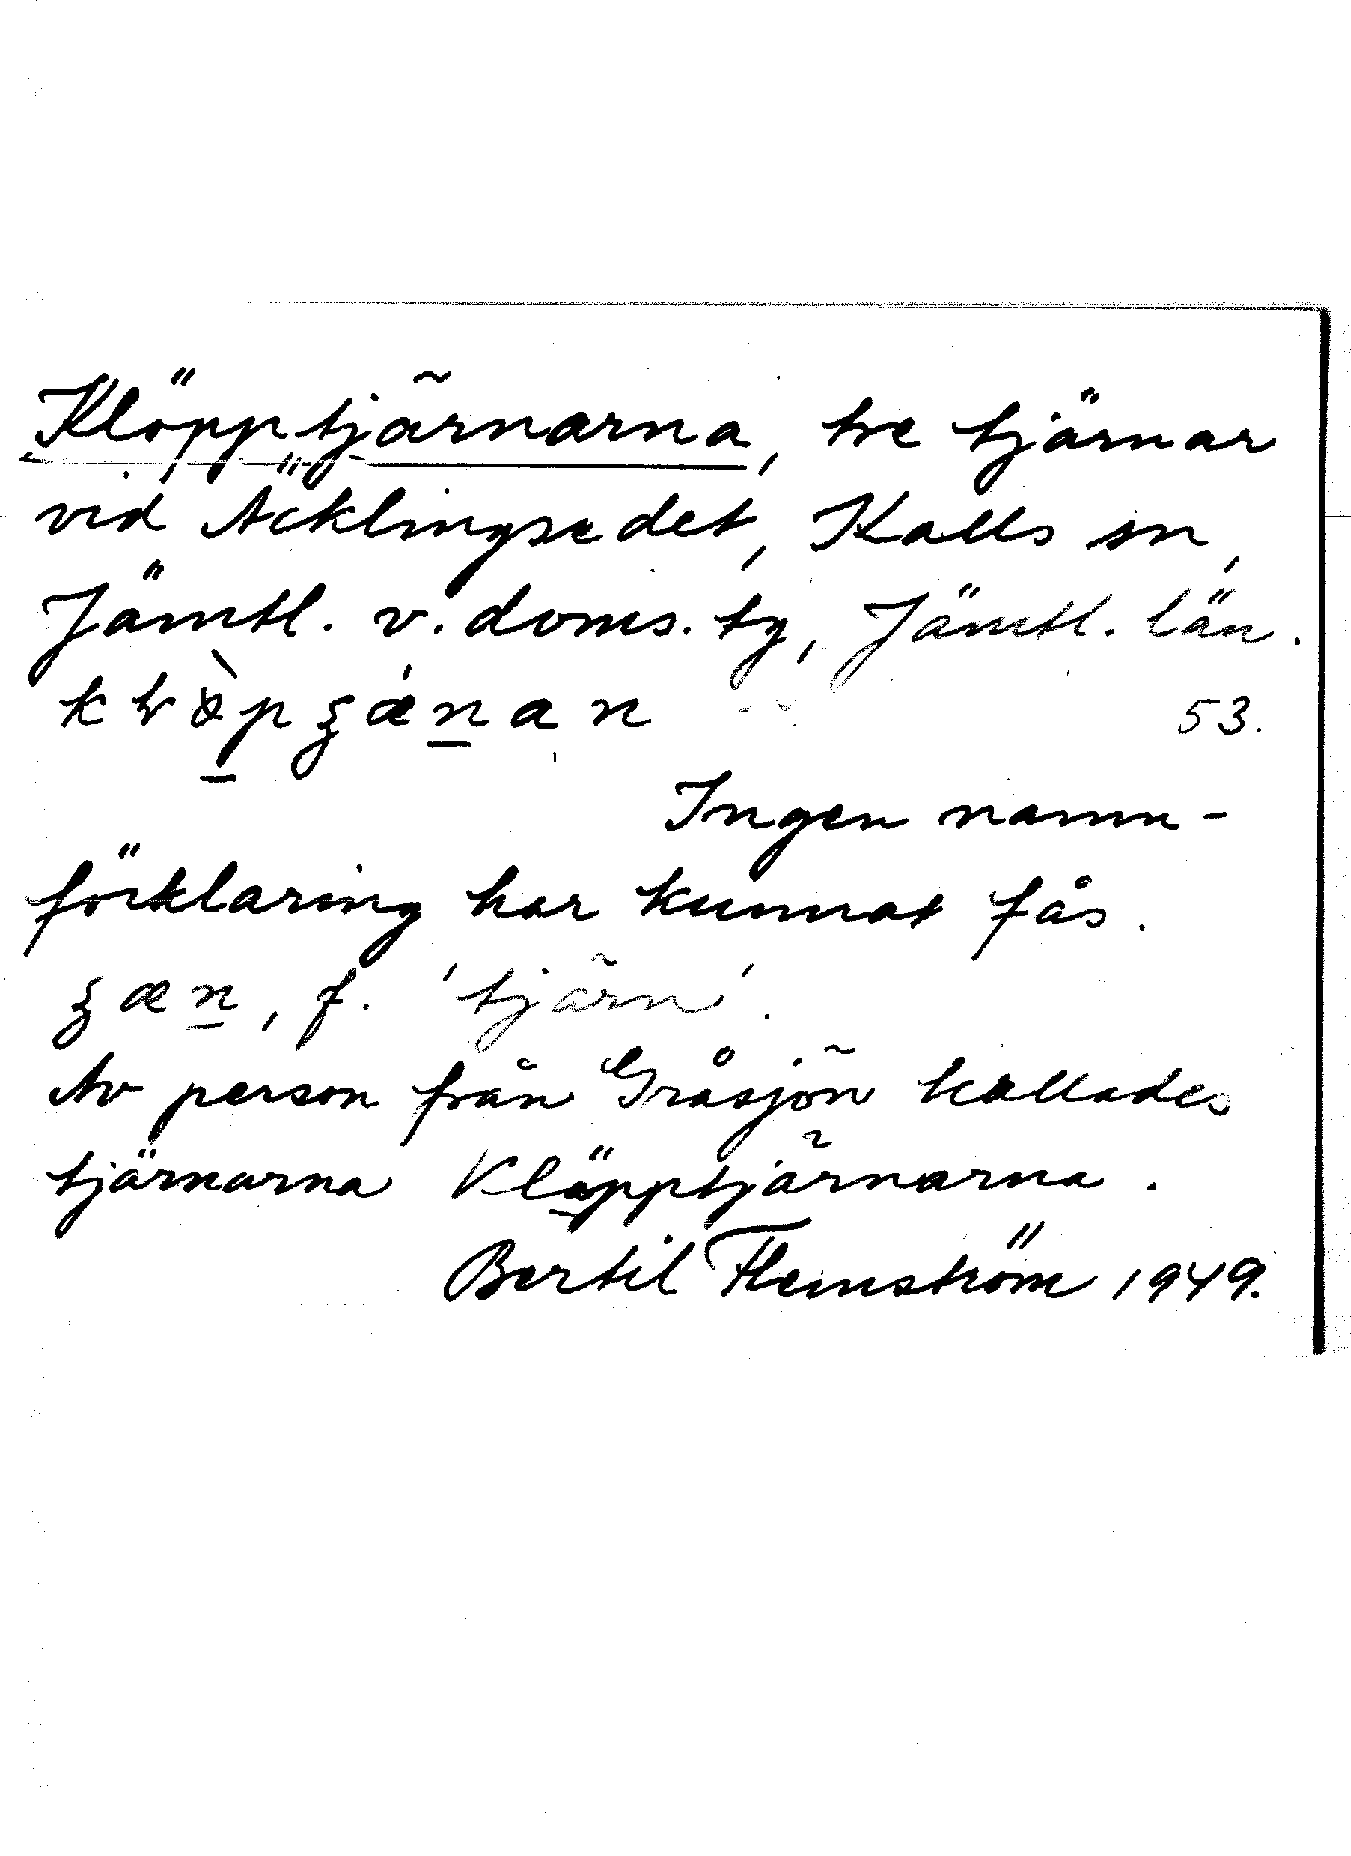 Klöpptjärnarna, tre tjärnar
vid Äcklingsedet, Kalls sn,
Jämtl. v. doms. tg, Jämtl. län.
53.
Ingen namn-
förklaring har kunnat fås.
f. 'tjärn'.
Av person från Gråsjön kallades
tjärnarna Kläpptjärnarna.
Bertil Flemström 1949.